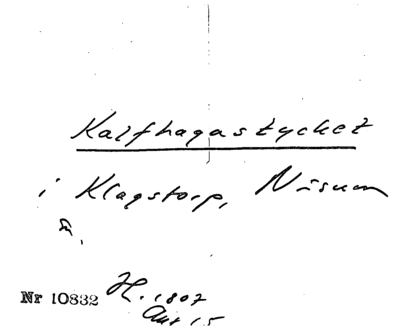 Kalfhagastycket
i Klagstorp, Näsum
sn.
Nr 10832 H. 1807
Akt 15